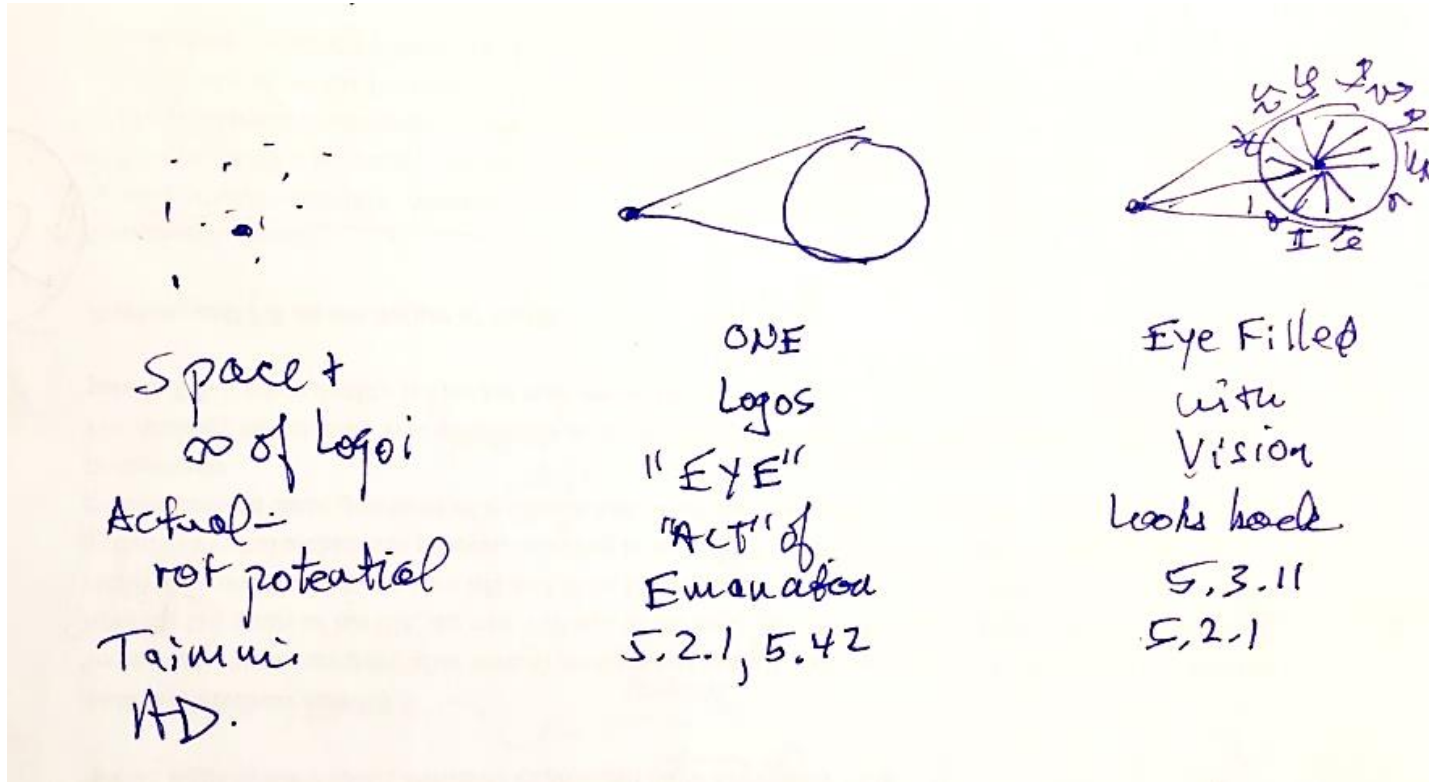 Space +
∞ of Logoi
Actual-
not potential
Taimni
AD.
ONE
Logos
"EYE"
"Act" of
Emanation
5.2.1, 5.42
Eye Filled
with
Vision
Looks back
5.3.11
5.2.1